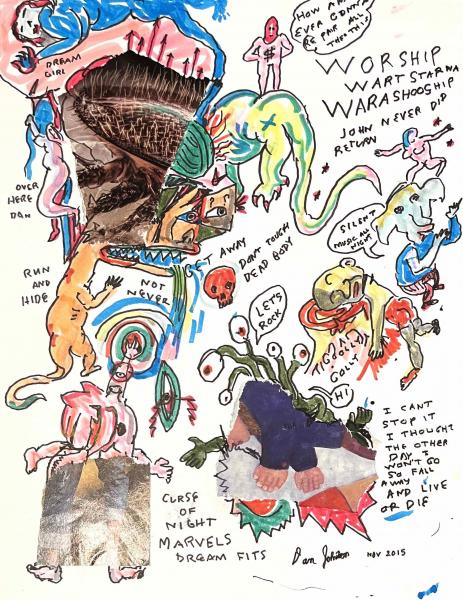 HOW AM I
EVER GONNA
BE PAIR ALL
THEN THIS
DREAM
GIRL
$
WORSHIP
WART STAR WA
WARASHOOSHIP
JOHN NEVER DID
RETURN
OVER
HERE
DAN
SILENT
MUSIC ALL
NIGHT
GET AWAY
DON'T TOUCH
DEAD BODY
RUN
AND
HIDE
NOT
NEVER
LET'S
ROCK
GOLLY
HI
I CANT
STOP IT
I THOUGHT
THE OTHER
DAY I
WON'T GO
SO FALL
AWAY
AND LIVE
OR DIE
CURSE
OF
NIGHT
MARVELS
DREAM FITS
Dan Johnston
NOV 2015